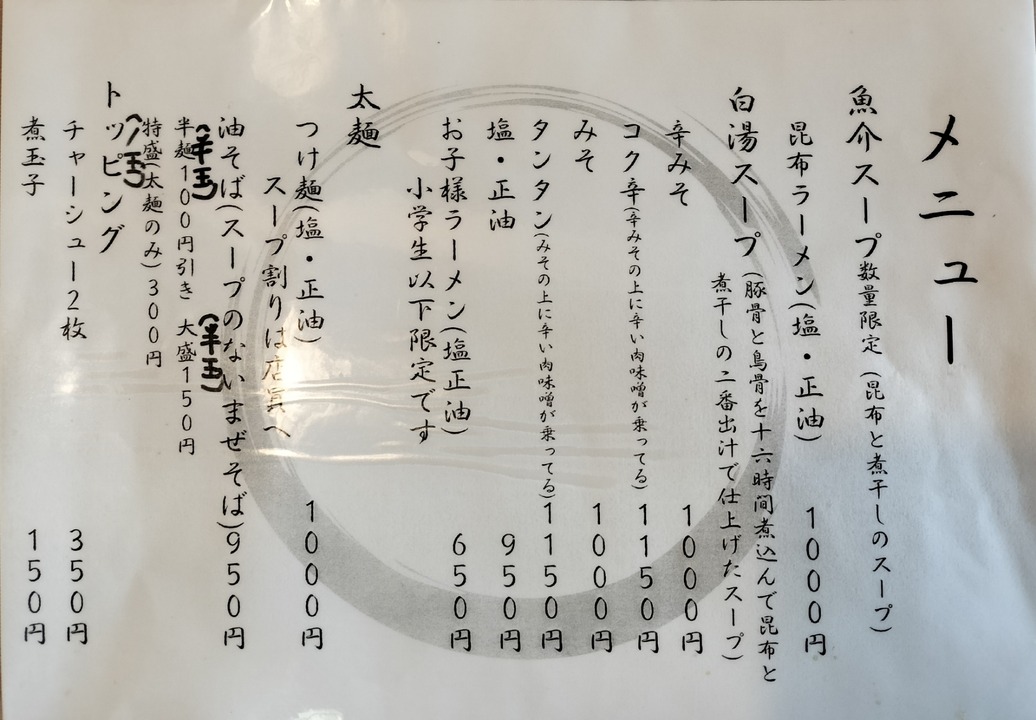 メニュー
魚介スープ数量限定(昆布と煮干しのスープ)
昆布ラーメン(塩・正油) 1000円
白湯スープ(豚骨と鳥骨を十六時間煮込んで昆布と
煮干しの二番出汁で仕上げたスープ)
辛みそ 1000円
コク辛(辛みその上に辛い肉味噌が乗ってる) 1150円
みそ 1000円
タンタン(みその上に辛い肉味噌が乗ってる) 1150円
塩・正油 950円
お子様ラーメン(塩正油) 650円
小学生以下限定です
太麺
つけ麺(塩・正油) 1000円
スープ割りは店員へ
油そば(スープのないまぜそば) 950円
半麺100円引き 大盛150円
特盛(太麺のみ)300円
トッピング
チャーシュー2枚 350円
煮玉子 150円